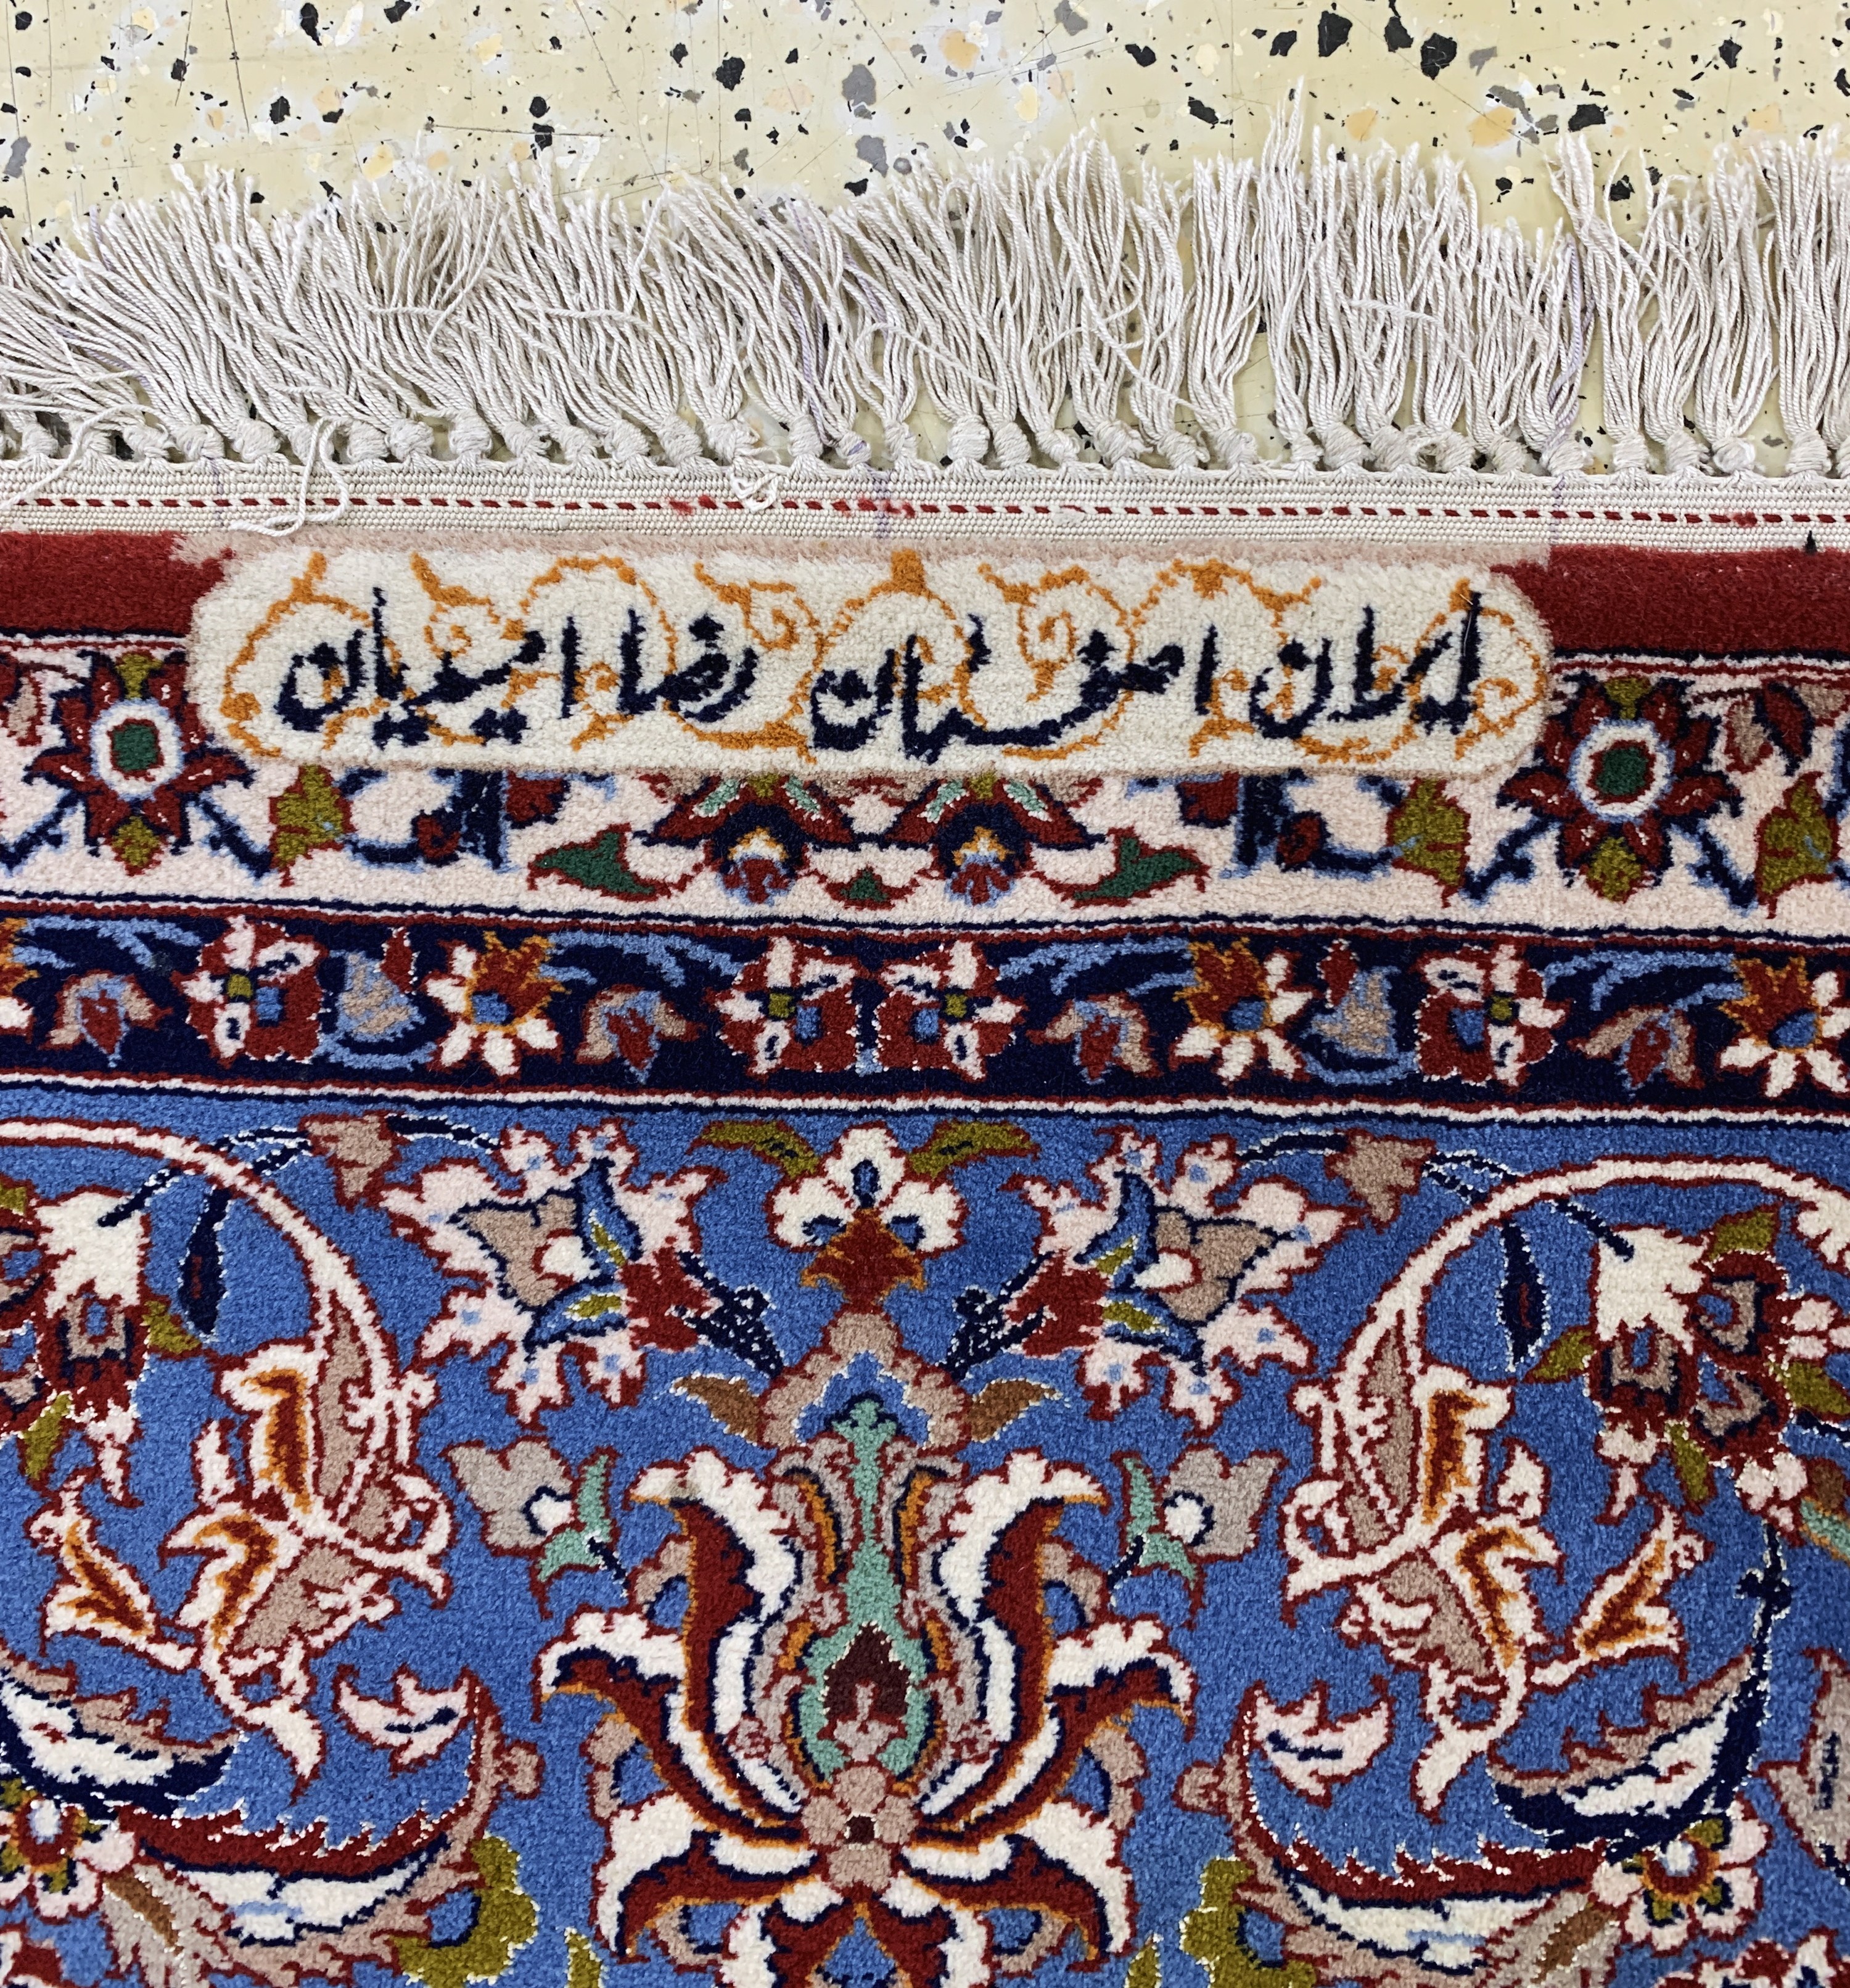 ایران اصفهان رضا امیدیان